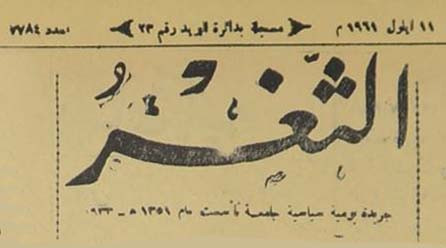 ١١ ايلول ١٩٦١ م مسجلة بدائرة البريد رقم ٢٣ العدد ٧٧٨٤
الثغر
جريدة يومية سياسية جامعة تأسست عام ١٣٥١ ه - ١٩٣٣